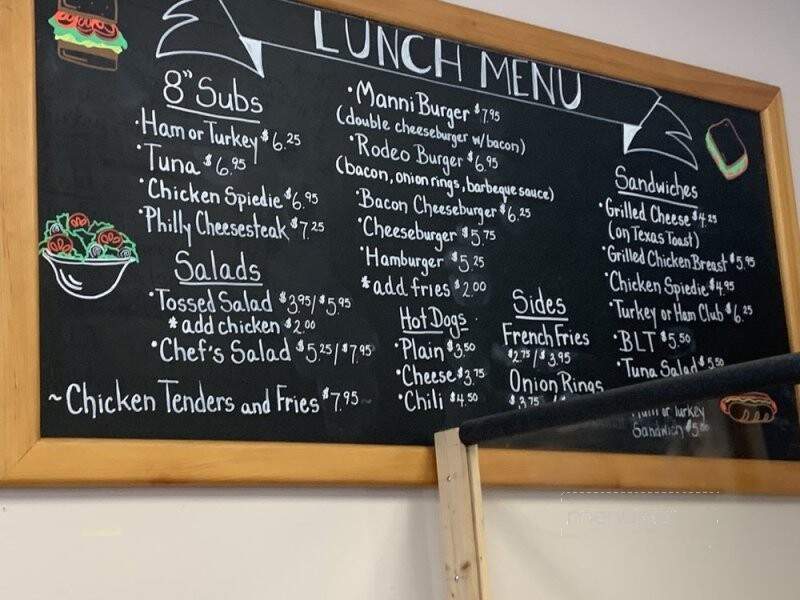 LUNCH MENU
8" Subs
·Ham or Turkey $6.25
·Tuna $6.95
·Chicken Spiedie $6.95
·Philly Cheesesteak $7.25
Salads
·Tossed Salad $3.95/$5.95
*add chicken $2.00
·Chef's Salad $5.25/$7.95
~Chicken Tenders and Fries $7.95
·Manni Burger $7.95
(double cheeseburger w/bacon)
·Rodeo Burger $6.95
(bacon, onion rings, barbeque sauce)
·Bacon Cheeseburger $6.25
·Cheeseburger $5.75
·Hamburger $5.25
*add fries $2.00
Hot Dogs
·Plain $3.50
·Cheese $3.75
·Chili $4.50
Sides
French Fries
$2.75/$3.95
Onion Rings
$3.75 /
Sandwiches
·Grilled Cheese $4.25
(on Texas Toast)
·Grilled Chicken Breast $5.95
·Chicken Spiedie $4.95
·Turkey or Ham Club $6.25
·BLT $5.50
·Tuna Salad $5.50
Ham or Turkey
Sandwich $5.50